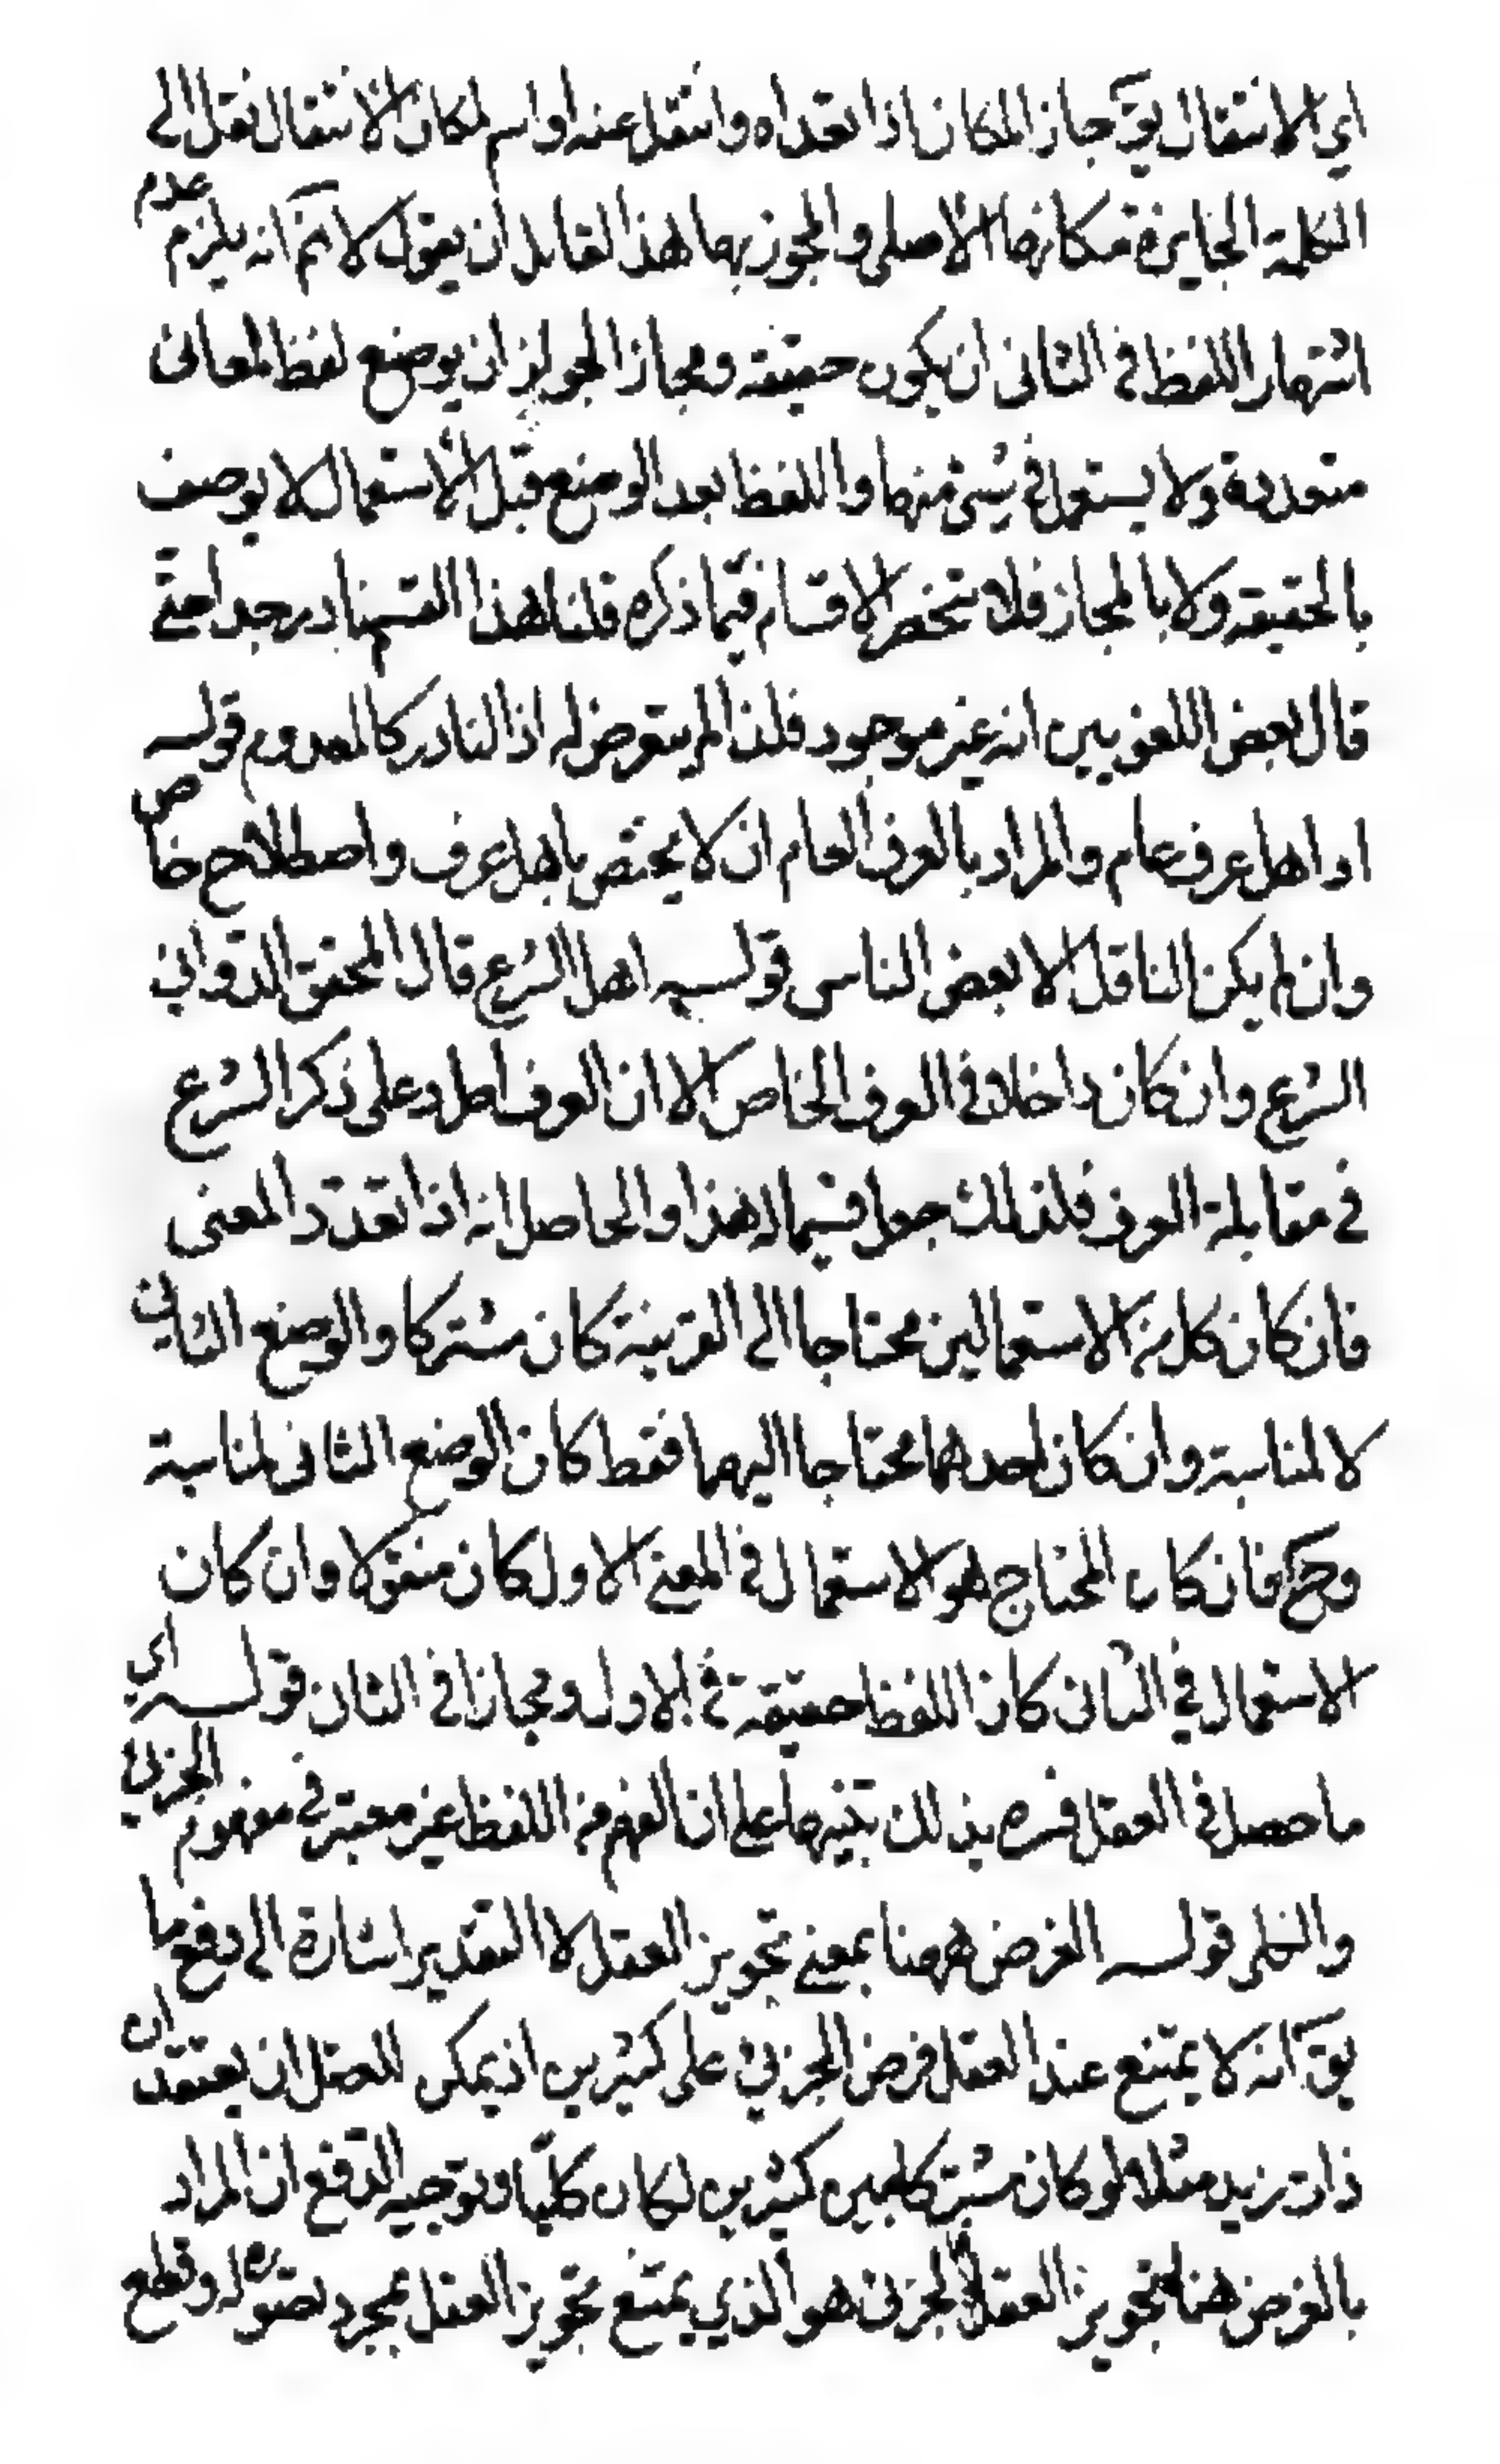 اي الانتقال يقٓ جاز المكان اذا تعداه وانتقل عنه او اسم لمكان الانتقال نقل الى
الكلمة الجايزة مكانها الاصلي والمجوز بها لهذا القايل ان يقول لا نمٓ انه يلزم عدم
اشتهار اللفظ في الثاني ان يكون حقيقة ومجازا لجواز ان يوضع لفظ لمعانى
متعددة ولا يستعمل في شئ منها واللفظ بعد الوضع قبل الاستعمال لا يوصف
بالحقيقة ولا بالمجاز فلا تنحصر الاقسام فيما ذكره قلنا هذا القسم نادر جدا حتى
قال بعض اللغويين انه غير موجود فلذا لم يتعرض له اذ النادر كالمعدوم قوله
او اهل عرف عام والمراد بالعرف العام ان لا يختص باهل عرف واصطلاح خاص
وان لم يكن الناقل الا بعض الناس قوله اهل الشرع قال المحقق الدواني
الشرع وان كان داخلا في العرف الخاص الا ان العرف اطرد على ذكر الشرع
في مقابلة العرف فلذلك جعل قسيما له هذا والحاصل انه اذا تعدد المعنى
فان كان كل من الاستعمالين محتاجا الى القرينة كان مشتركا والوضع الثاني
لا لمناسبة وان كان احدهما محتاجا اليها فقط كان الوضع الثاني لمناسبة
وحٓ فان كان المحتاج هو الاستعمال في المعنى الاول كان منقولا وان كان
الاستعمال في الثاني كان اللفظ حقيقة في الاول ومجازا في الثان قوله اي
ما حصل في العقل فسره بذلك تنبيها على ان الفهم من اللفظ غير معتبر في مفهوم الجزئي
والكلى قوله الفرض ههنا بمعنى تجويز العقل لا التقدير اشارة الى دفع ما
يقٓ انه لا يمتنع عند العقل فرض الجزئي على كثيرين اذ يمكن للعقل ان يعتقد ان
ذات زيد مثلا لو كان مشتركا بين كثيرين لكان كليا وتوجيه الدفع ان المراد
بالفرض هنا تجويز العقل فالجزئى هو الذي يمتنع تجويز العقل بمجرد تصوره له وقطع